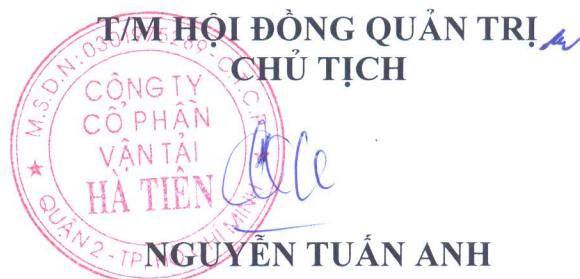 T/M HỘI ĐỒNG QUẢN TRỊ
CHỦ TỊCH
CÔNG TY
CỔ PHẦN
VẬN TẢI
HÀ TIÊN
QUẬN 2 - TP
NGUYỄN TUẤN ANH